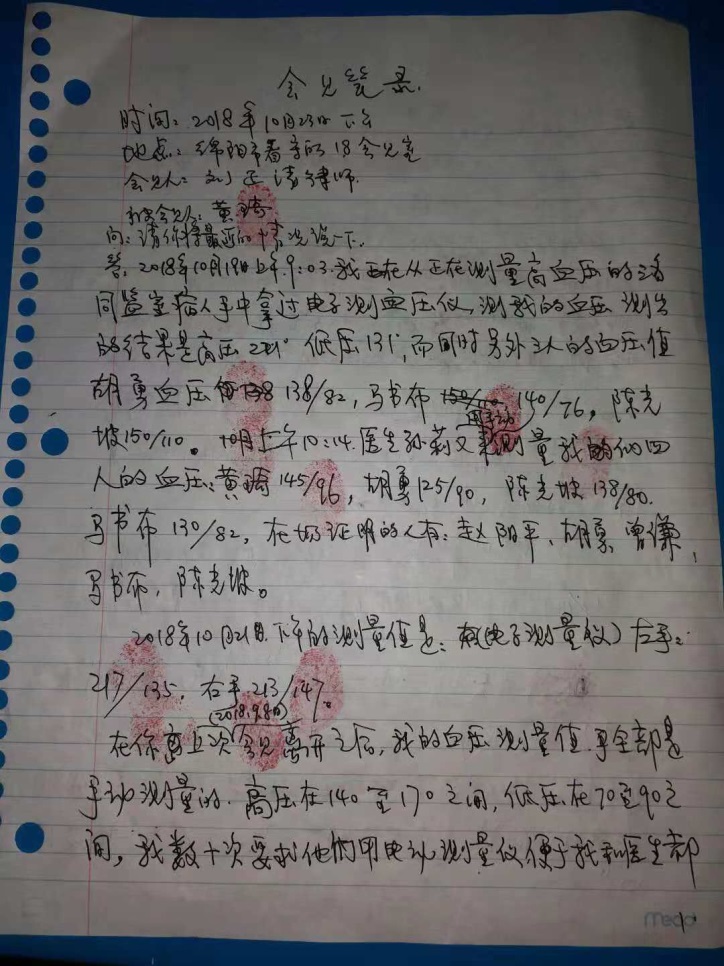 会见笔录.
时间：2018年10月23日下午
地点：绵阳市看守所18会见室
会见人：刘正清律师.
被会见人：黄琦
问：请你将最近的情况说一下.
答：2018年10月19日上午9:03.我正在从正在测量高血压的
同监室病人手中拿过电子测血压仪,测我的血压 测出
的结果是高压 低压131,而同时另外三人的血压值
胡勇血压 138/82,马书布 140/76,陈克
坡150/110。 上午10:14.医生孙莉又来用手动测量我们四
人的血压：黄琦145/96,胡勇125/90,陈克坡138/80.
马书布130/82,在场证明的人有：赵阳平、胡勇、曾谦,
马书布,陈克坡。
2018年10月21日下午的测量值是：(电子测量仪)左手：
217/135.右手213/147。
(2018.9.8日)
在你上次会见离开之后,我的血压测量值.全部是
手动测量的.高压在140至170之间,低压在70至90之
间,我数十次要求他们用电子测量仪便于我和医生都
1